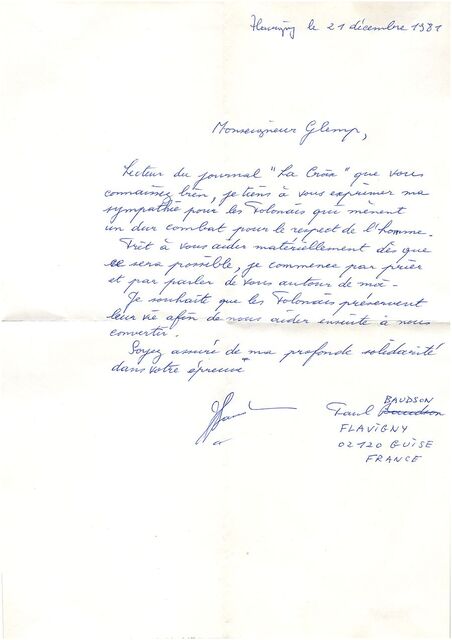 Flavigny le 21 décembre 1981
Monseigneur Glemp,
Lecteur du journal "La Croix" que vous
connaissez bien, je tiens à vous exprimer ma
sympathie pour les Polonais qui mènent
un dur combat pour le respect de l'homme.
Prêt à vous aider matériellement dès que
ce sera possible, je commence par prier
et par parler de vous autour de moi.
Je souhait que les Polonais préservent
leur vie afin de nous aider ensuite à nous
convertir.
Soyez assuré de ma profonde solidarité
dans votre épreuve
BAUDSON
Paul Baudson
FLAVIGNY
02120 GUISE
FRANCE